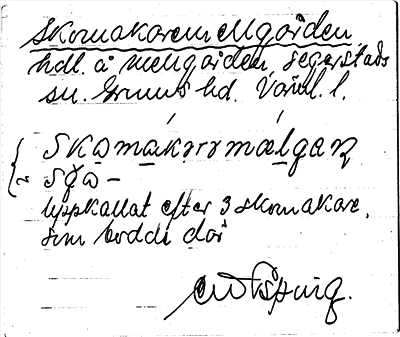 Skomakaremellgården
hdl. å mellgården, Segerstads
sn. Grums hd. Värml. l.
skomákarmælgaɳ
sga –
uppkallat efter 3 skomakare,
som bodde där